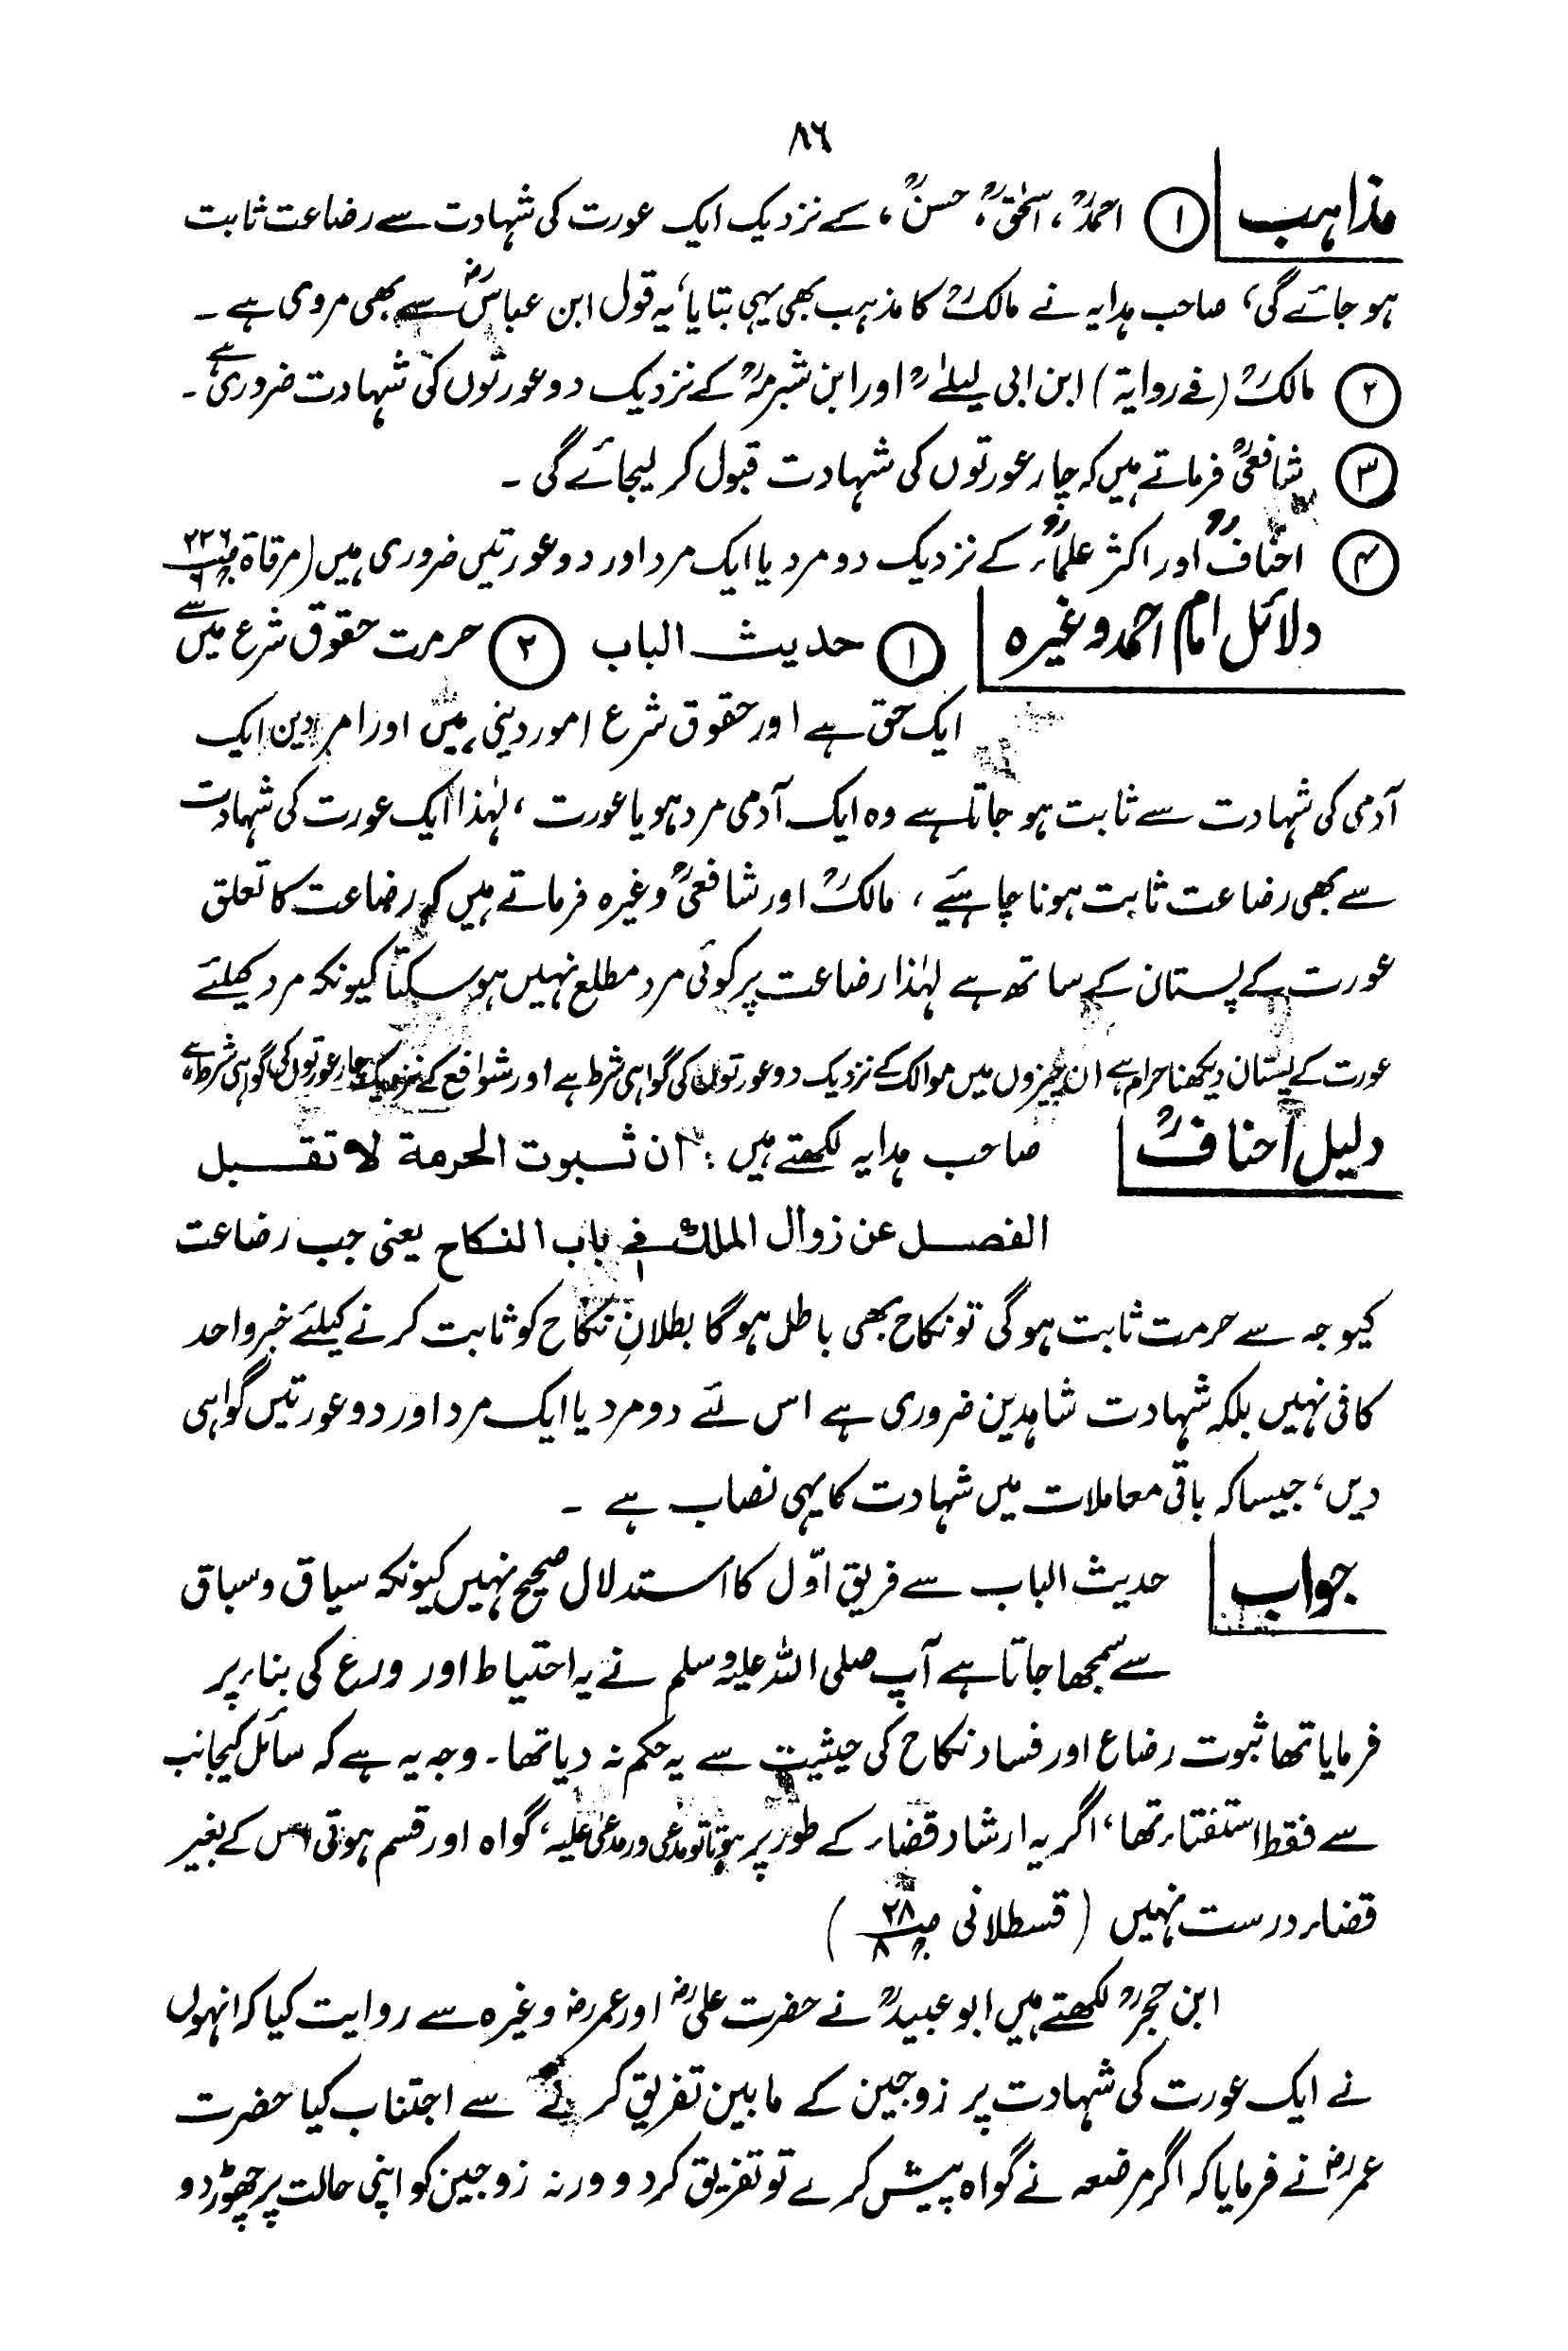 ۸۶
مذاہب ① احمدؒ، اسحٰقؒ، حسنؒ، کے نزدیک ایک عورت کی شہادت سے رضاعت ثابت
ہوجائے گی، صاحب ہدایہ نے مالکؒ کا مذہب بھی یہی بتایا، یہ قول ابن عباسؓ سے بھی مروی ہے ۔
② مالکؒ (فے روایۃ) ابن ابی لیلےٰؒ اور ابن شبرمہؒ کے نزدیک دو عورتوں کی شہادت ضروری ہے ۔
③ شافعیؒ فرماتے ہیں کہ چار عورتوں کی شہادت قبول کرلیجائے گی ۔
④ احنافؒ اور اکثر علماءؒ کے نزدیک دو مرد یا ایک مرد اور دو عورتیں ضروری ہیں (مرقاۃ ۲۲۶/۶
دلائل امام احمد وغیرہ ① حدیث الباب ② حرمت حقوق شرع میں سے
ایک حق ہے اور حقوق شرع امور دینی ہیں اور امر دین ایک
آدمی کی شہادت سے ثابت ہوجاتا ہے وہ ایک آدمی مرد ہو یا عورت، لہٰذا ایک عورت کی شہادت
سے بھی رضاعت ثابت ہونا چاہیئے، مالکؒ اور شافعیؒ وغیرہ فرماتے ہیں کہ رضاعت کا تعلق
عورت کے پستان کے ساتھ ہے لہٰذا رضاعت پر کوئی مرد مطلع نہیں ہوسکتا کیونکہ مرد کھلئے
عورت کے پستان دیکھنا حرام ہے ان چیزوں میں موالک کے نزدیک دو عورتوں کی گواہی شرط ہے اور شوافع کے نزدیک چار عورتوں کی گواہی شرط ہے
دلیل احنافؒ صاحب ہدایہ لکھتے ہیں : ان ثبوت الحرمة لا تقبل
الفصل عن زوال الملك فی باب النكاح یعنی جب رضاعت
کیوجہ سے حرمت ثابت ہوگی تو نکاح بھی باطل ہوگا بطلانِ نکاح کو ثابت کرنے کیلئے خبر واحد
کافی نہیں بلکہ شہادت شاہدین ضروری ہے اس لئے دو مرد یا ایک مرد اور دو عورتیں گواہی
دیں، جیساکہ باقی معاملات میں شہادت کا یہی نصاب ہے ۔
جواب حدیث الباب سے فریق اوّل کا استدلال صحیح نہیں کیونکہ سیاق و سباق
سے سمجھا جاتا ہے آپ صلی اللہ علیہ وسلم نے یہ احتیاط اور ورع کی بناء پر
فرمایا تھا ثبوت رضاع اور فساد نکاح کی حیثیت سے یہ حکم نہ دیا تھا ۔ وجہ یہ ہے کہ سائل کیجانب
سے فقط استفتاء تھا، اگر یہ ارشاد قضاء کے طور پر ہوتا تو مدعی ور مدعیٰ علیہ، گواہ اور قسم ہوتی اس کے بغیر
قضاء درست نہیں (قسطلانی ۲۸/۸)
ابن حجرؒ لکھتے ہیں ابو عبیدؒ نے حضرت علیؓ اور عمرؓ وغیرہ سے روایت کیا کہ انہوں
نے ایک عورت کی شہادت پر زوجین کے مابین تفریق کرنے سے اجتناب کیا حضرت
عمرؓ نے فرمایا کہ اگر مرضعہ نے گواہ پیش کرے تو تفریق کردو ورنہ زوجین کو اپنی حالت پر چھوڑ دو